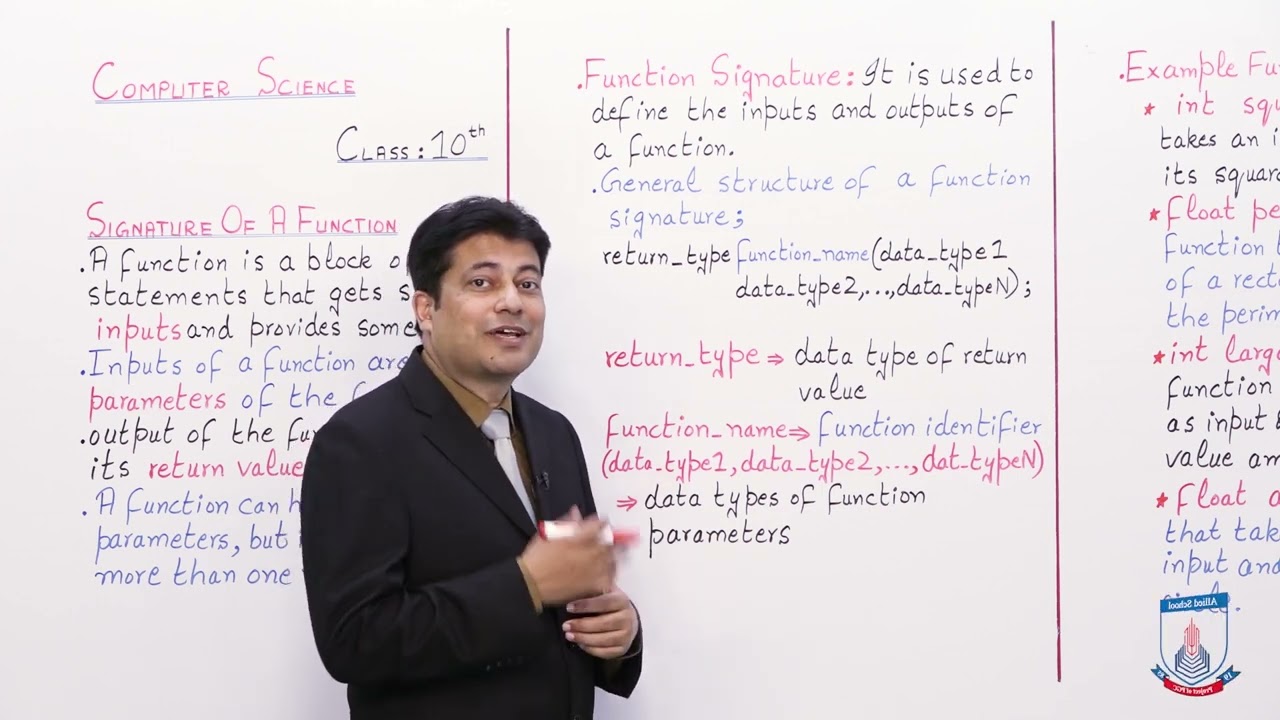 COMPUTER SCIENCE
CLASS: 10th
SIGNATURE OF A FUNCTION
.A function is a block
statements that gets
inputs and provides some
.Inputs of a function are
parameters of the
.output of the
its return value
.A function can
parameters, but
more than one
.Function Signature: It is used to
define the inputs and outputs of
a function.
.General structure of a function
signature;
return_type function_name(data_type1
data_type2,...,data_typeN);
return_type ⇒ data type of return
value
function_name ⇒ function identifier
(data_type1, data_type2,..., dat_typeN)
⇒ data types of function
parameters
.Example
* int
takes an
its
* float
function
of a
the
* int
function
as input
value
* float
that
input and
Allied School
Project of PGC